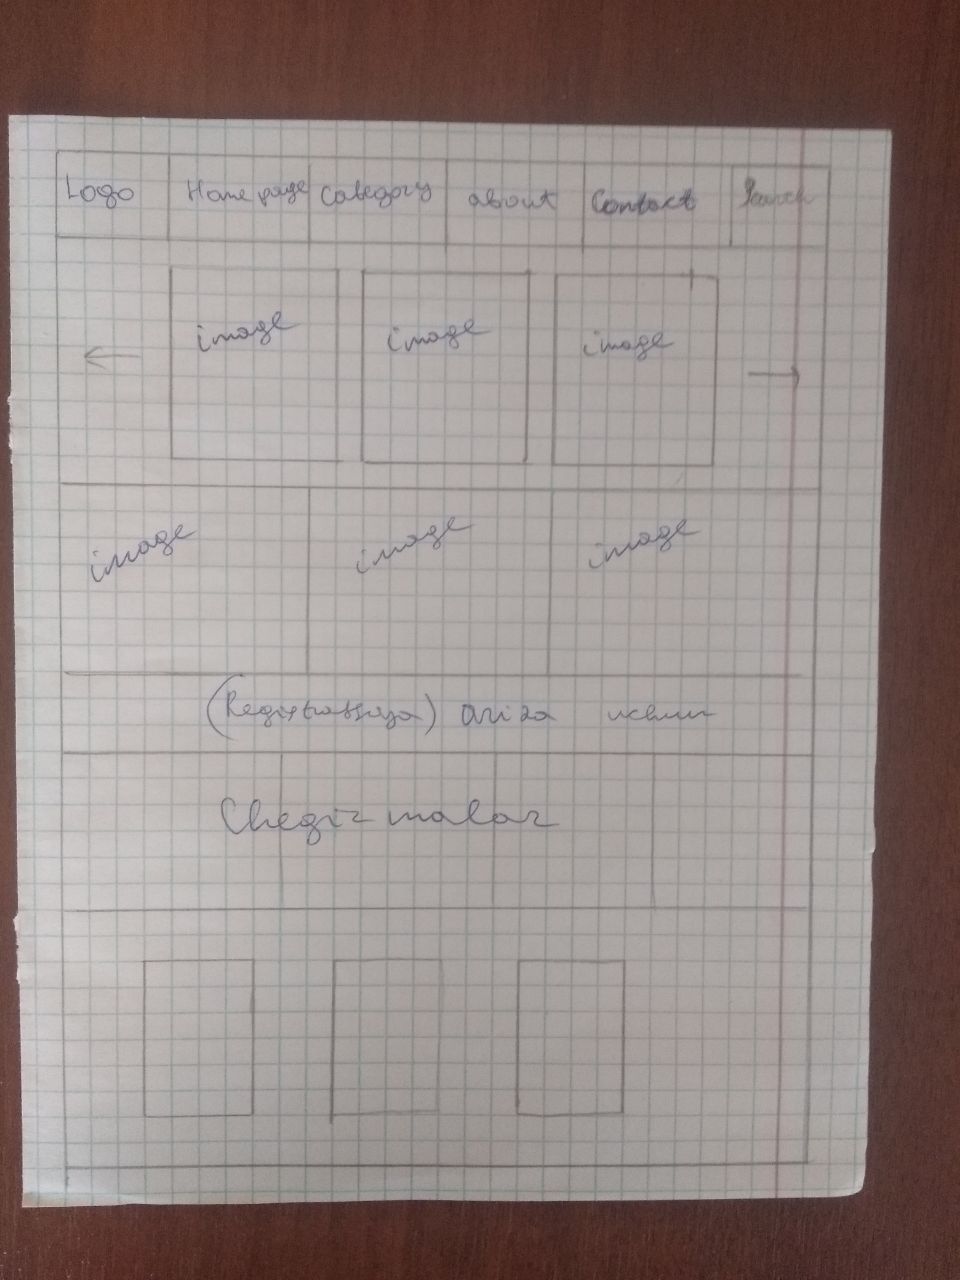 Logo Home page Category about Contact Search
image image image
image image image
(Registratsiya) ariza
Chegirmalar